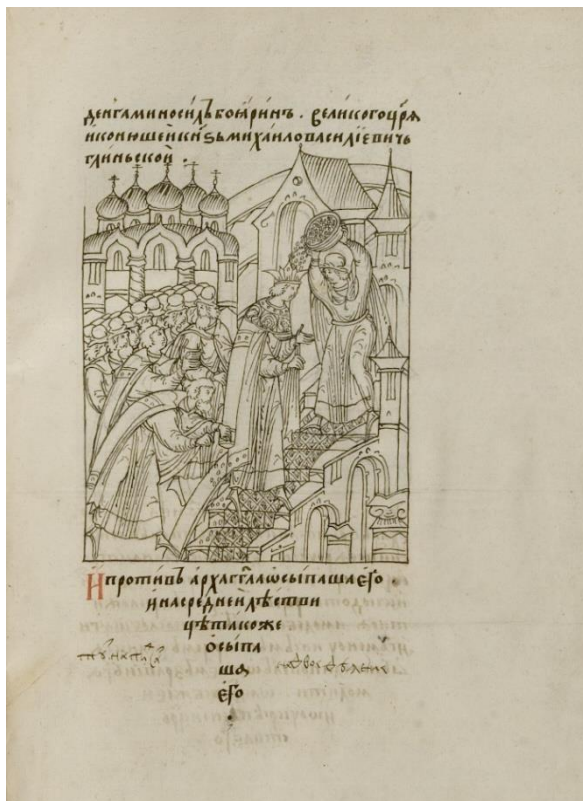 денгаминосилъбояринъ. великогоцр҃ѧ
иконюшейкн҃ѕьмихаиловасилїевичь
глиньской.
Ипротивъархаггл҃аѡсыпашаего.
инасреднейлѣстви
цѣтакоже
осыпа
шѧ
его